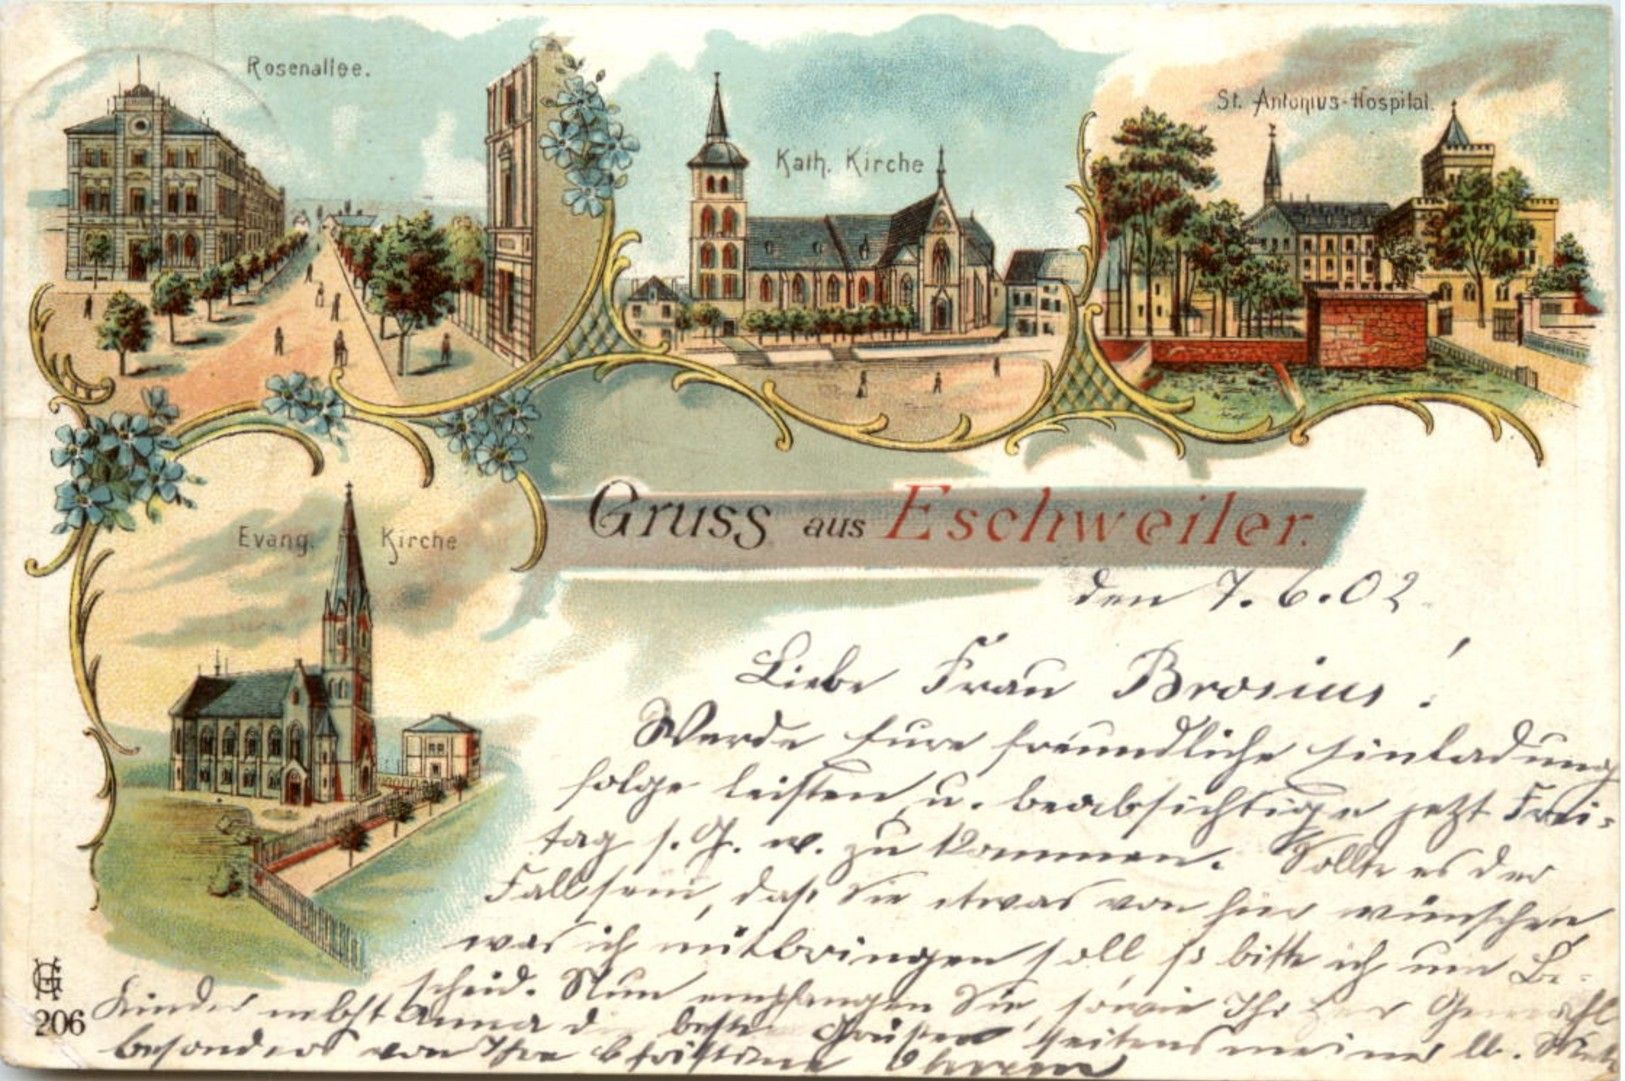 Rosenallee.
Kath. Kirche
St. Antonius-Hospital.
Evang. Kirche
Gruss aus Eschweiler.
den 7.6.02
Liebe Frau Brosius!
Werde Eure freundliche Einladung
folge leisten u. beabsichtige jetzt Frei-
tag s. G. w. zu kommen. Sollte es der
Fall sein, daß Sie etwas von hier wünschen
was ich mitbringen soll, so bitte ich um Be-
scheid. Nun empfangen Sie, sowie Ihr Herr Gemahl
Kinder nebst Anna die besten Grüßen seitens meiner lb.
besonders von Ihre
HG
206